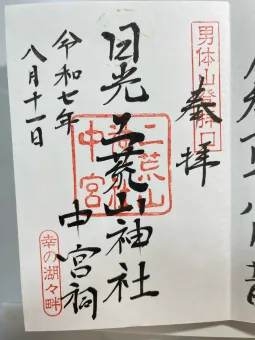 男体山登拝口
奉拝
日光二荒山神社
中宮祠
二荒山
中宮
令和七年
八月十一日
幸の湖々畔